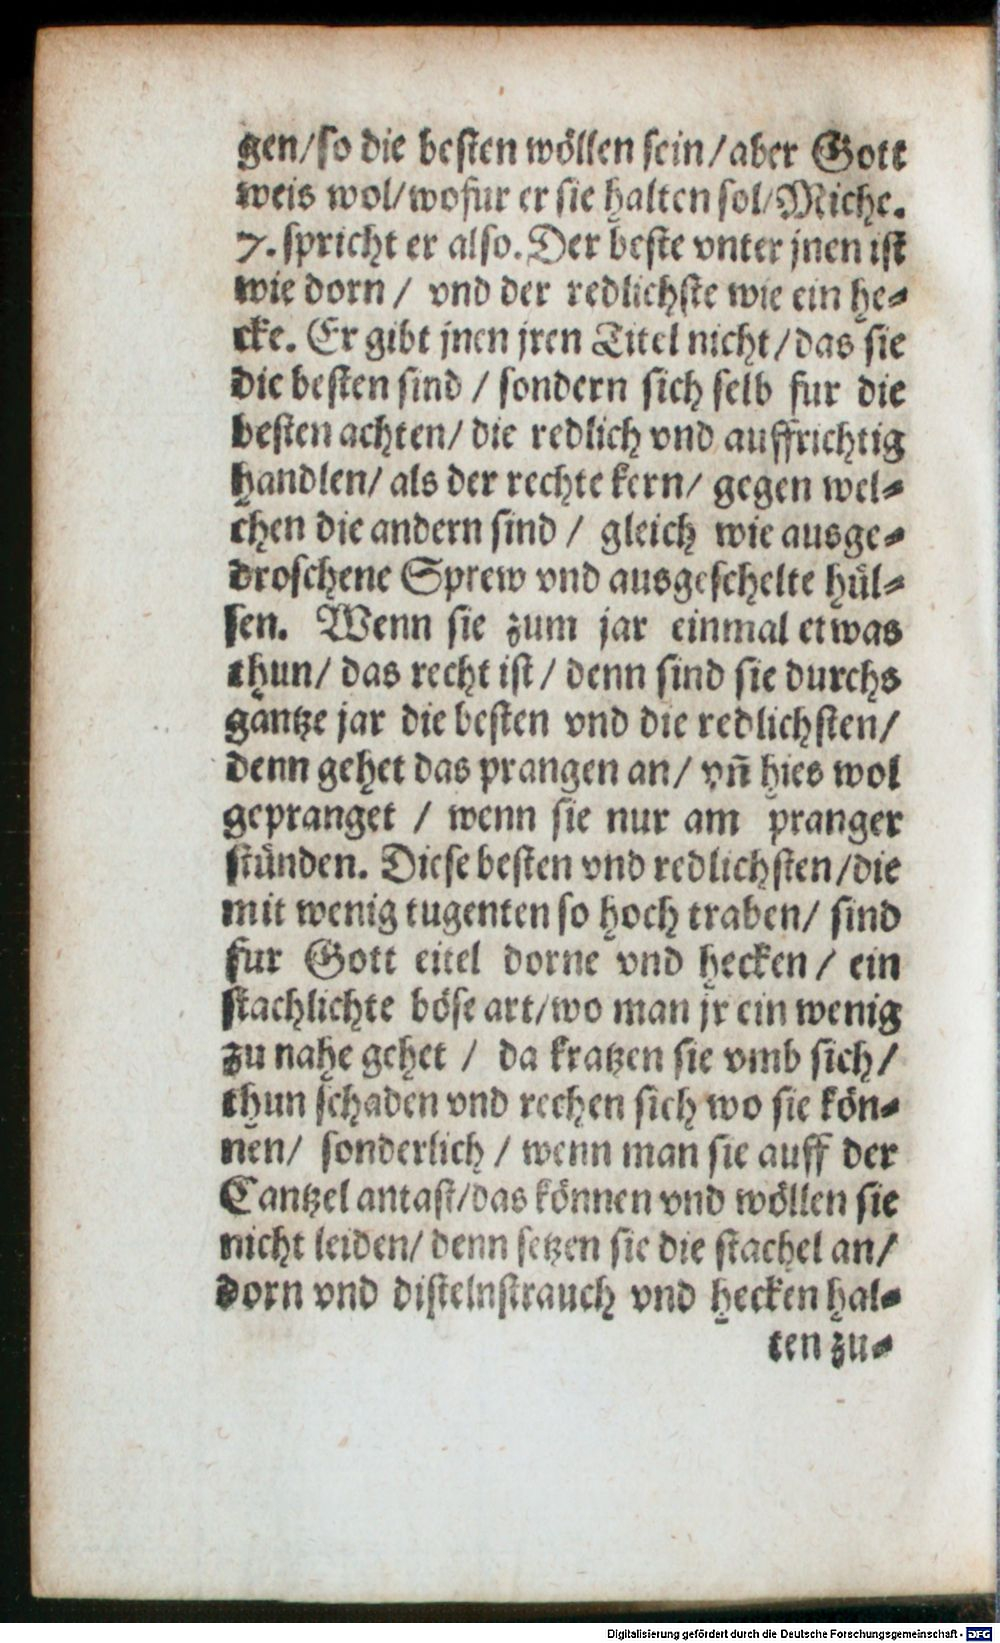 gen/so die besten wöllen sein/aber Gott
weis wol/wofur er sie halten sol/Miche.
7. spricht er also. Der beste vnter jnen ist
wie dorn / vnd der redlichste wie ein he⸗
cke. Er gibt jnen jren Titel nicht/das sie
die besten sind / sondern sich selb fur die
besten achten/ die redlich vnd auffrichtig
handlen/ als der rechte kern/ gegen wel⸗
chen die andern sind / gleich wie ausge⸗
droschene Sprew vnd ausgeschelte hül⸗
sen. Wenn sie zum jar einmal etwas
thun/ das recht ist/ denn sind sie durchs
gantze jar die besten vnd die redlichsten/
denn gehet das prangen an/ vñ hies wol
gepranget / wenn sie nur am pranger
stünden. Diese besten vnd redlichsten/die
mit wenig tugenten so hoch traben/ sind
fur Gott eitel dorne vnd hecken / ein
stachlichte böse art/wo man jr ein wenig
zu nahe gehet / da kratzen sie vmb sich/
thun schaden vnd rechen sich wo sie kön⸗
nen/ sonderlich / wenn man sie auff der
Cantzel antast/das können vnd wöllen sie
nicht leiden/ denn setzen sie die stachel an/
dorn vnd distelnstrauch vnd hecken hal⸗
ten zu⸗
Digitalisierung gefördert durch die Deutsche Forschungsgemeinschaft - DFG